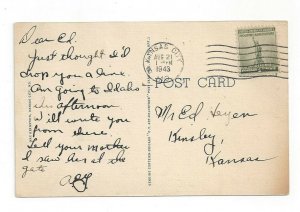 Dear Ed.
Just thought I'd
drop you a line.
Am going to Idaho
this afternoon.
I'll write you
from there.
Tell your mother
I saw her at the
gate
KANSAS CITY
AUG 21
1943
POST CARD
Mr Ed Heyen
Kinsley,
Kansas